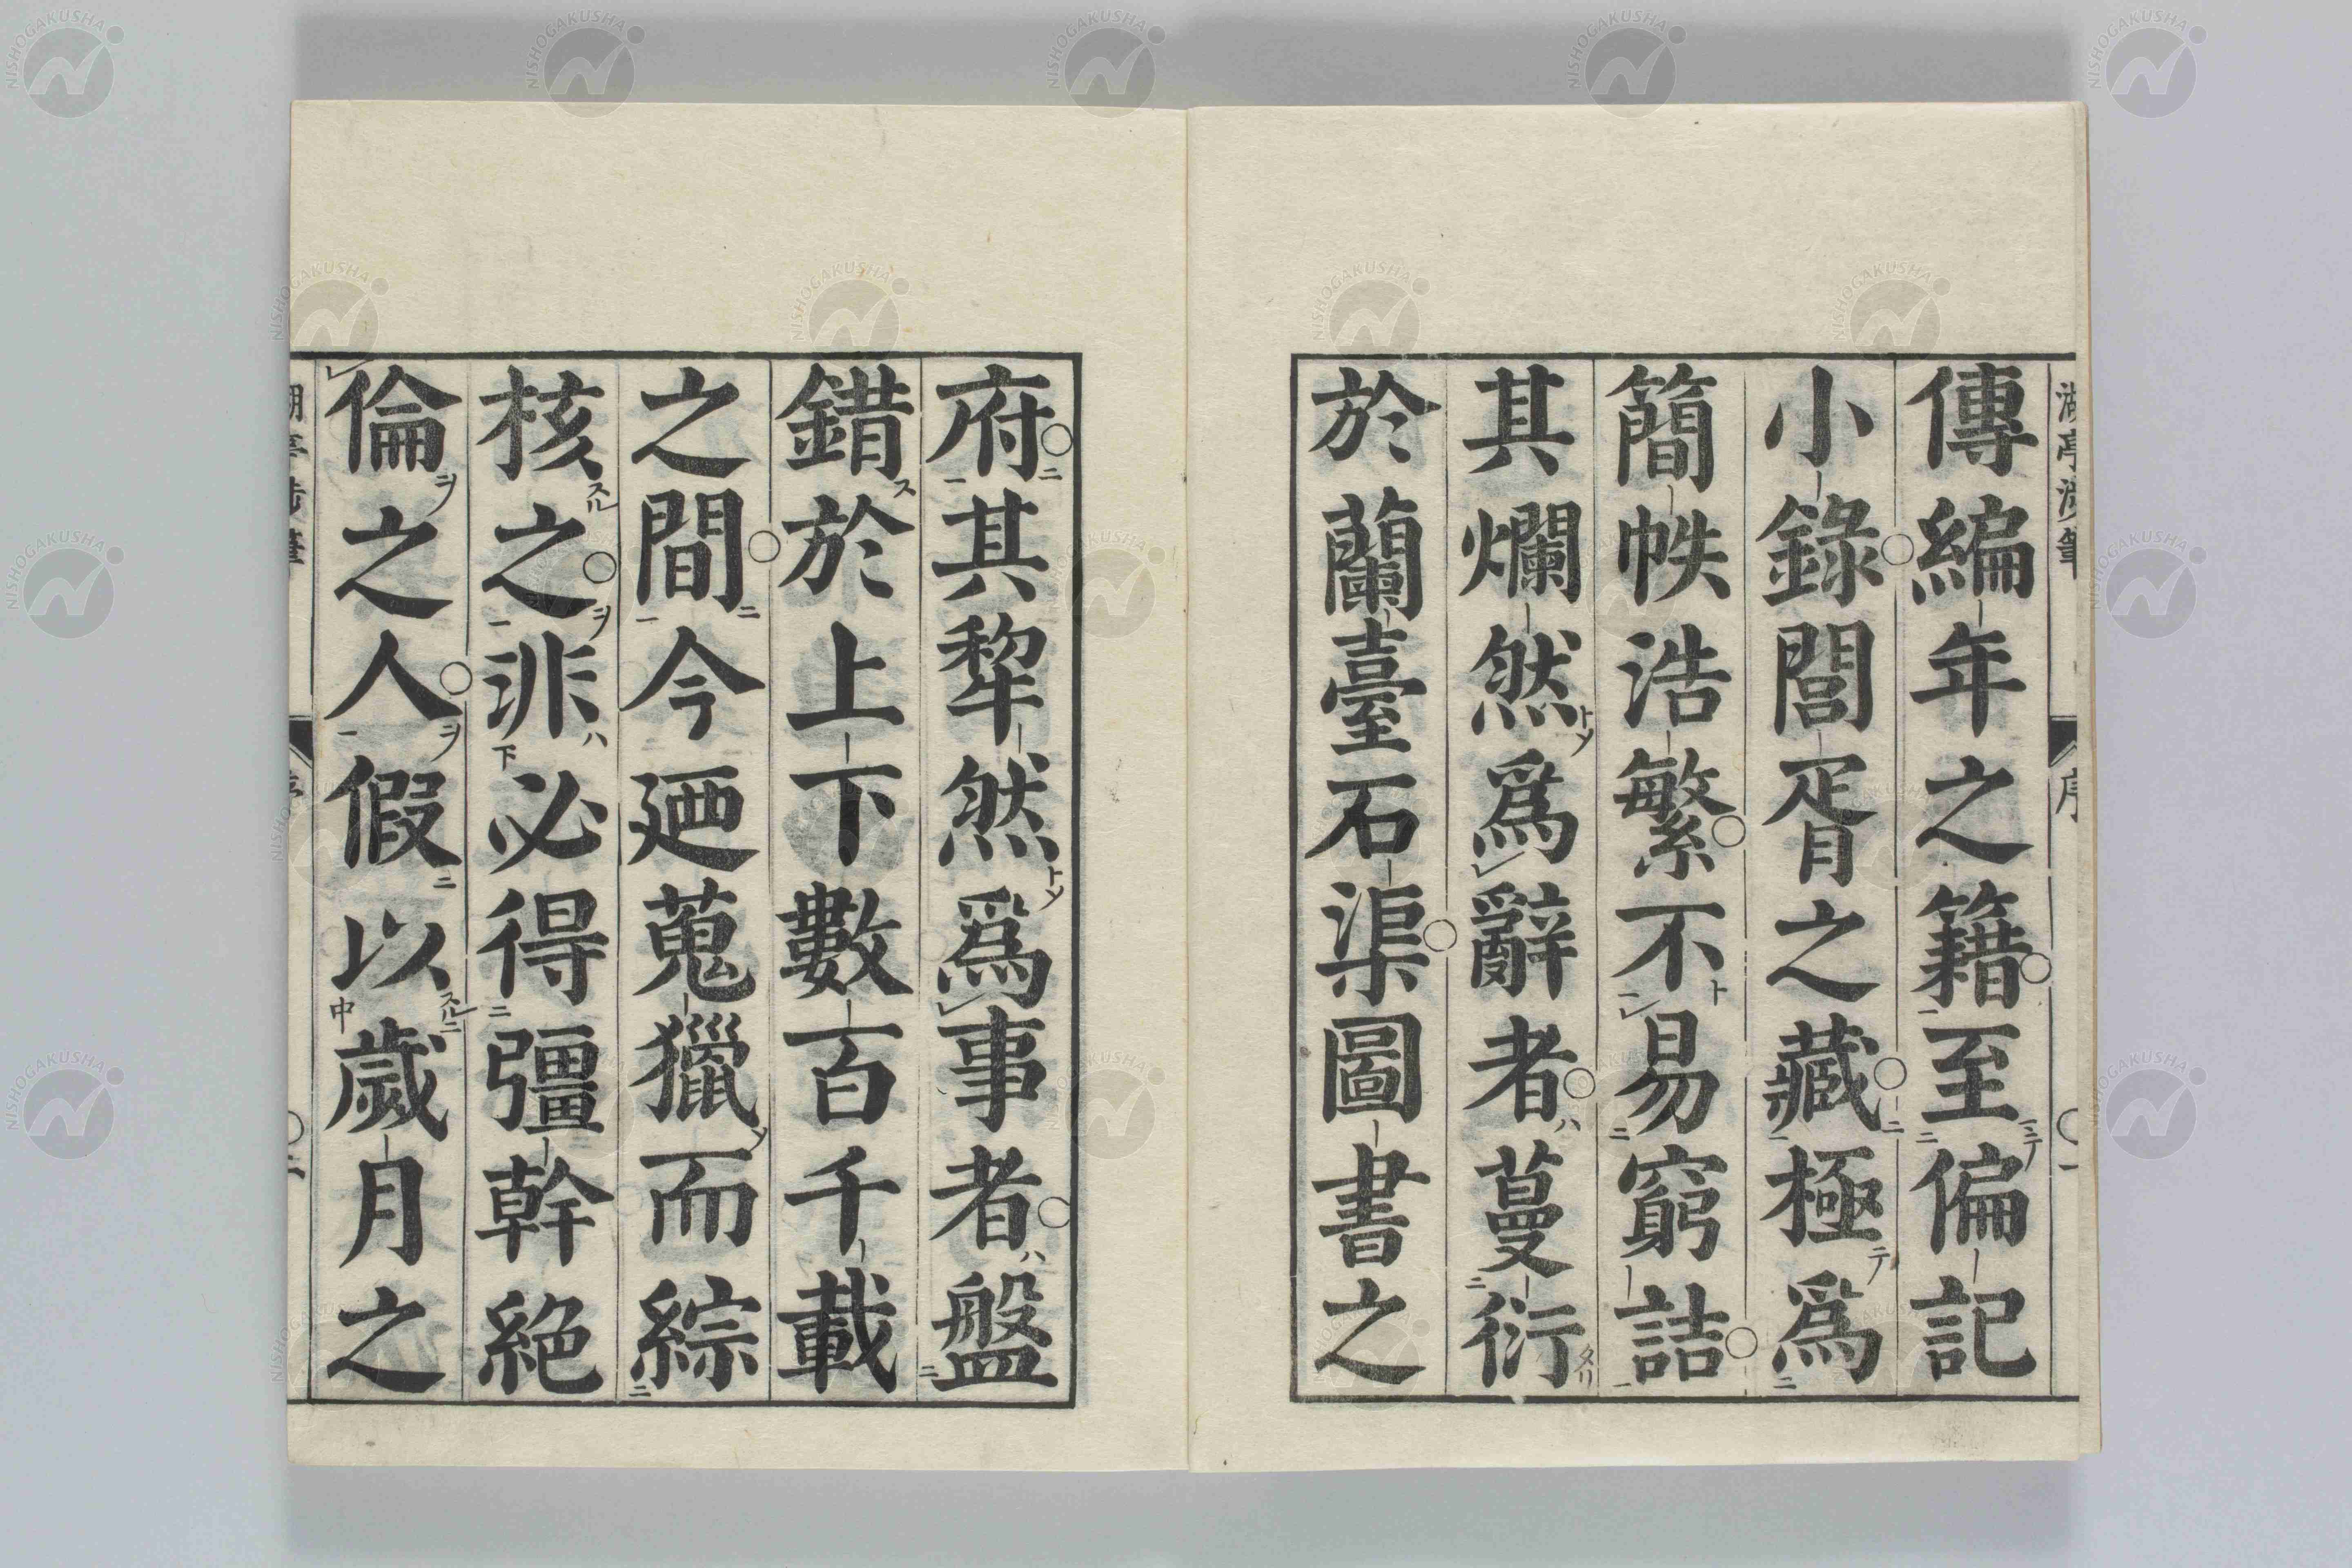 傳編年之籍至偏記
小錄閭胥之藏極爲
簡帙浩繁不易窮詰
其爛然爲辭者蔓衍
於蘭臺石渠圖書之
府其犂然爲事者盤
錯於上下數百千載
之間今廼蒐獵而綜
核之非必得彊幹絶
倫之人假以歲月之
序
NISHOGAKUSHA